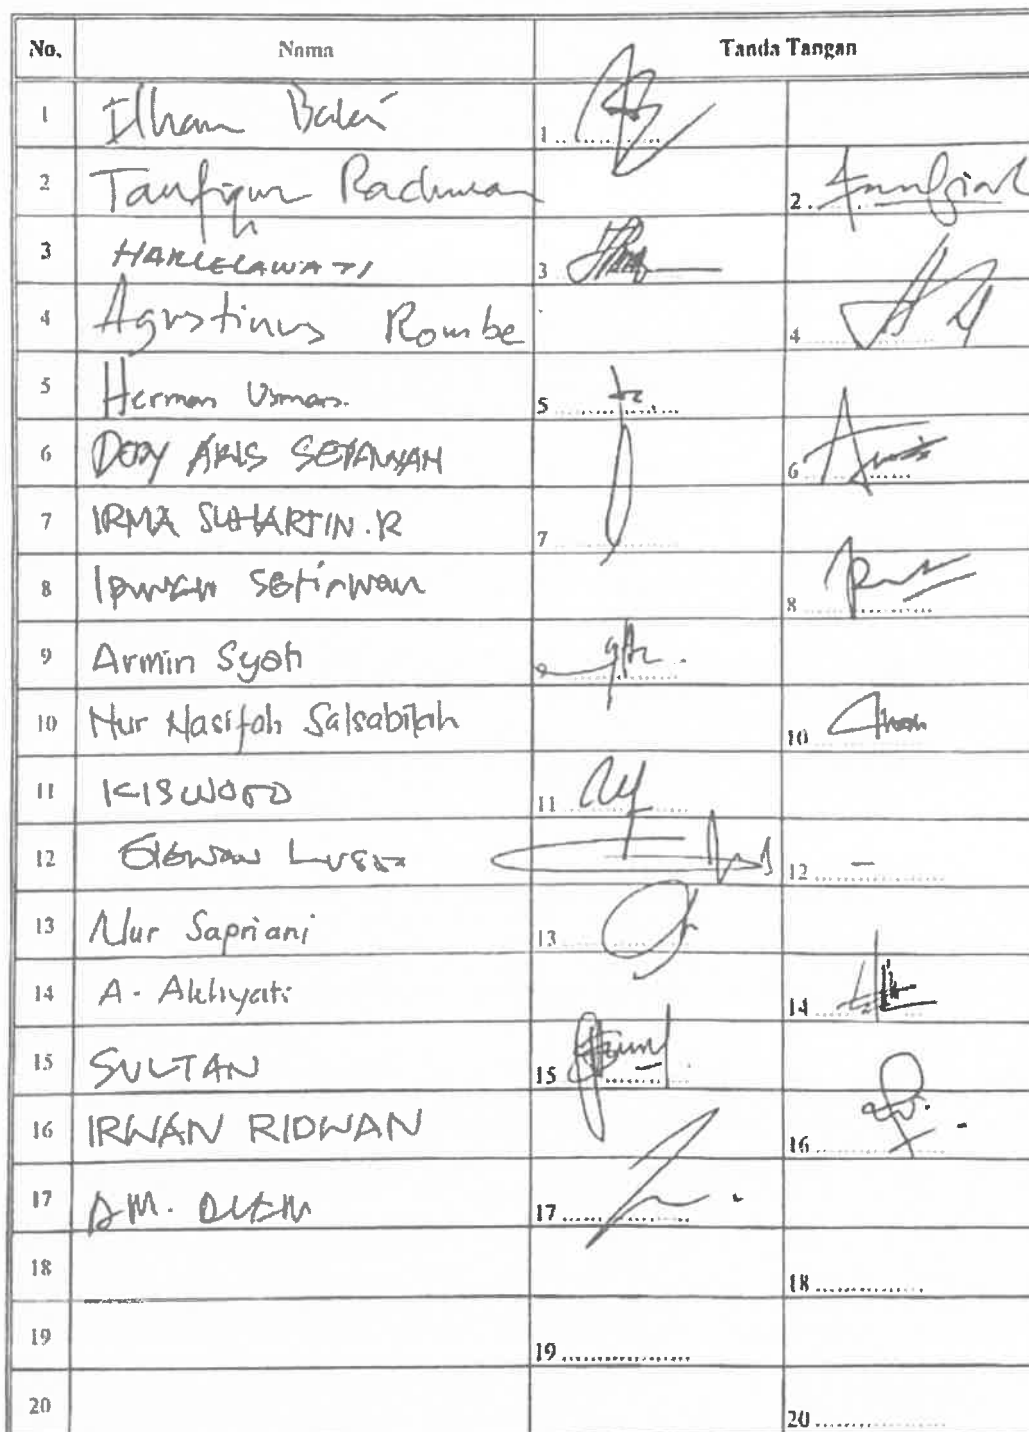 No. Nama Tanda Tangan
1 Ilham 1
2 Taufiqur Rachman 2
3 HARLELAWATI 3
4 Agustinus Rombe 4
5 Herman Usman. 5
6 DODY ARIS SETIAWAN 6
7 IRMA SUHARTIN.R 7
8 Setiawan 8
9 Armin Syah
10 Nur Nasifah Salsabilah 10
11 KISWORO 11
12 12 -
13 Nur Sapriani 13
14 A. Akhyati 14
15 SULTAN 15
16 IRWAN RIDWAN 16
17 AM. 17
18 18
19 19
20 20